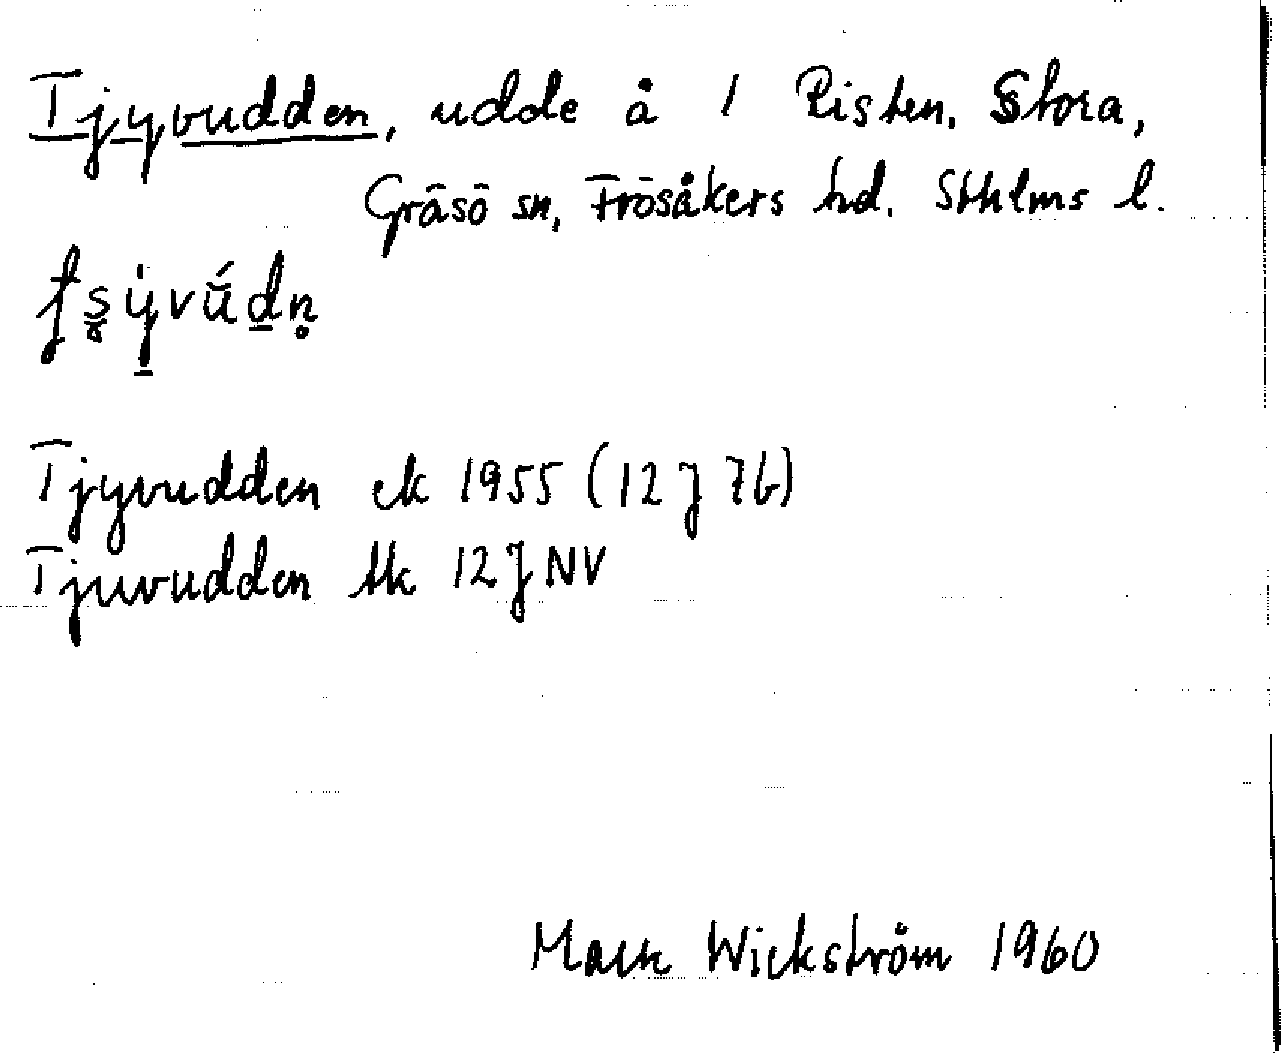 Tjyvudden, udde å 1 Risten, Stora,
Gräsö sn, Frösåkers hd. Sthlms l.
Tjyvudden ek 1955 (12 J 7b)
Tjuvudden tk 12 J NV
Wickström 1960